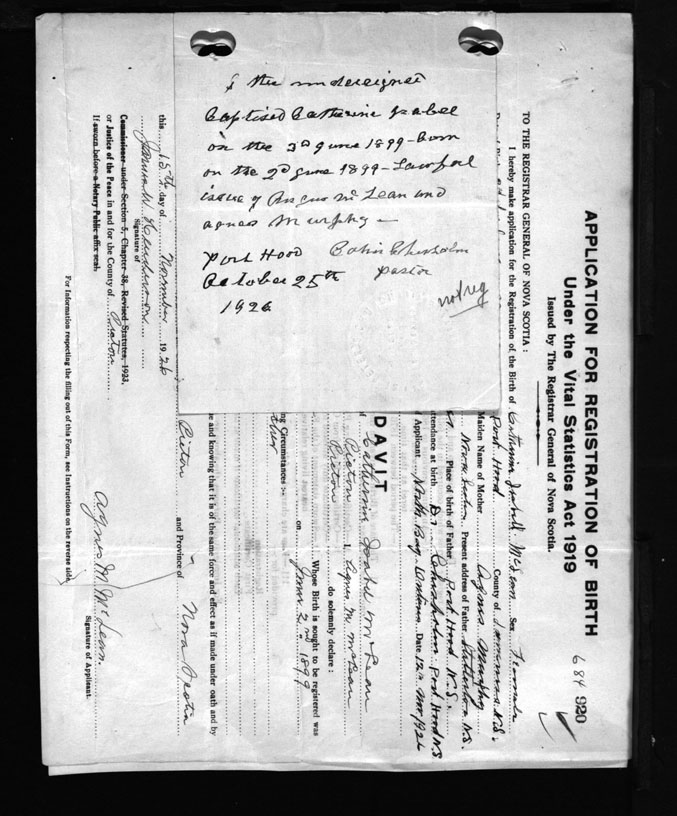 I the undersigned
Baptised Catherine Isabel
on the 3rd June 1899 - Born
on the 2d June 1899 - Lawful
issue of Angus McLean and
Agnes Murphy -
Port Hood Colin Chisholm
Pastor
October 25th
1926
not reg
APPLICATION FOR REGISTRATION OF BIRTH
684 920
Under the Vital Statistics Act 1919
Issued by The Registrar General of Nova Scotia.
TO THE REGISTRAR GENERAL OF NOVA SCOTIA :
I hereby make application for the Registration of the Birth of Catherine Isabell McLean Sex Female
Port Hood County of Inverness N.S.
Maiden Name of Mother Agnes Murphy
Nova Scotia Present address of Father N.S.
Place of birth of Father Port Hood N.S.
attendance at birth Dr Chisholm Port Hood N.S.
Applicant North Bay Ontario Date 12th Nov 1926
DAVIT
Catherin Isabel McLean
Pictou I, Agnes M McLean
Pictou do solemnly declare :
Whose Birth is sought to be registered was
on June 2nd 1899
ng Circumstances :-
ther
e and knowing that it is of the same force and effect as if made under oath and by
Pictou and Province of Nova Scotia
this 15th day of November 1926
Signature of
Commissioner under Section 5, Chapter 38, Revised Statutes, 1923,
or Justice of the Peace in and for the County of Pictou
If sworn before a Notary Public affix seal.
Agnes M McLean.
Signature of Applicant.
For Information respecting the filling out of this Form, see Instructions on the reverse side.